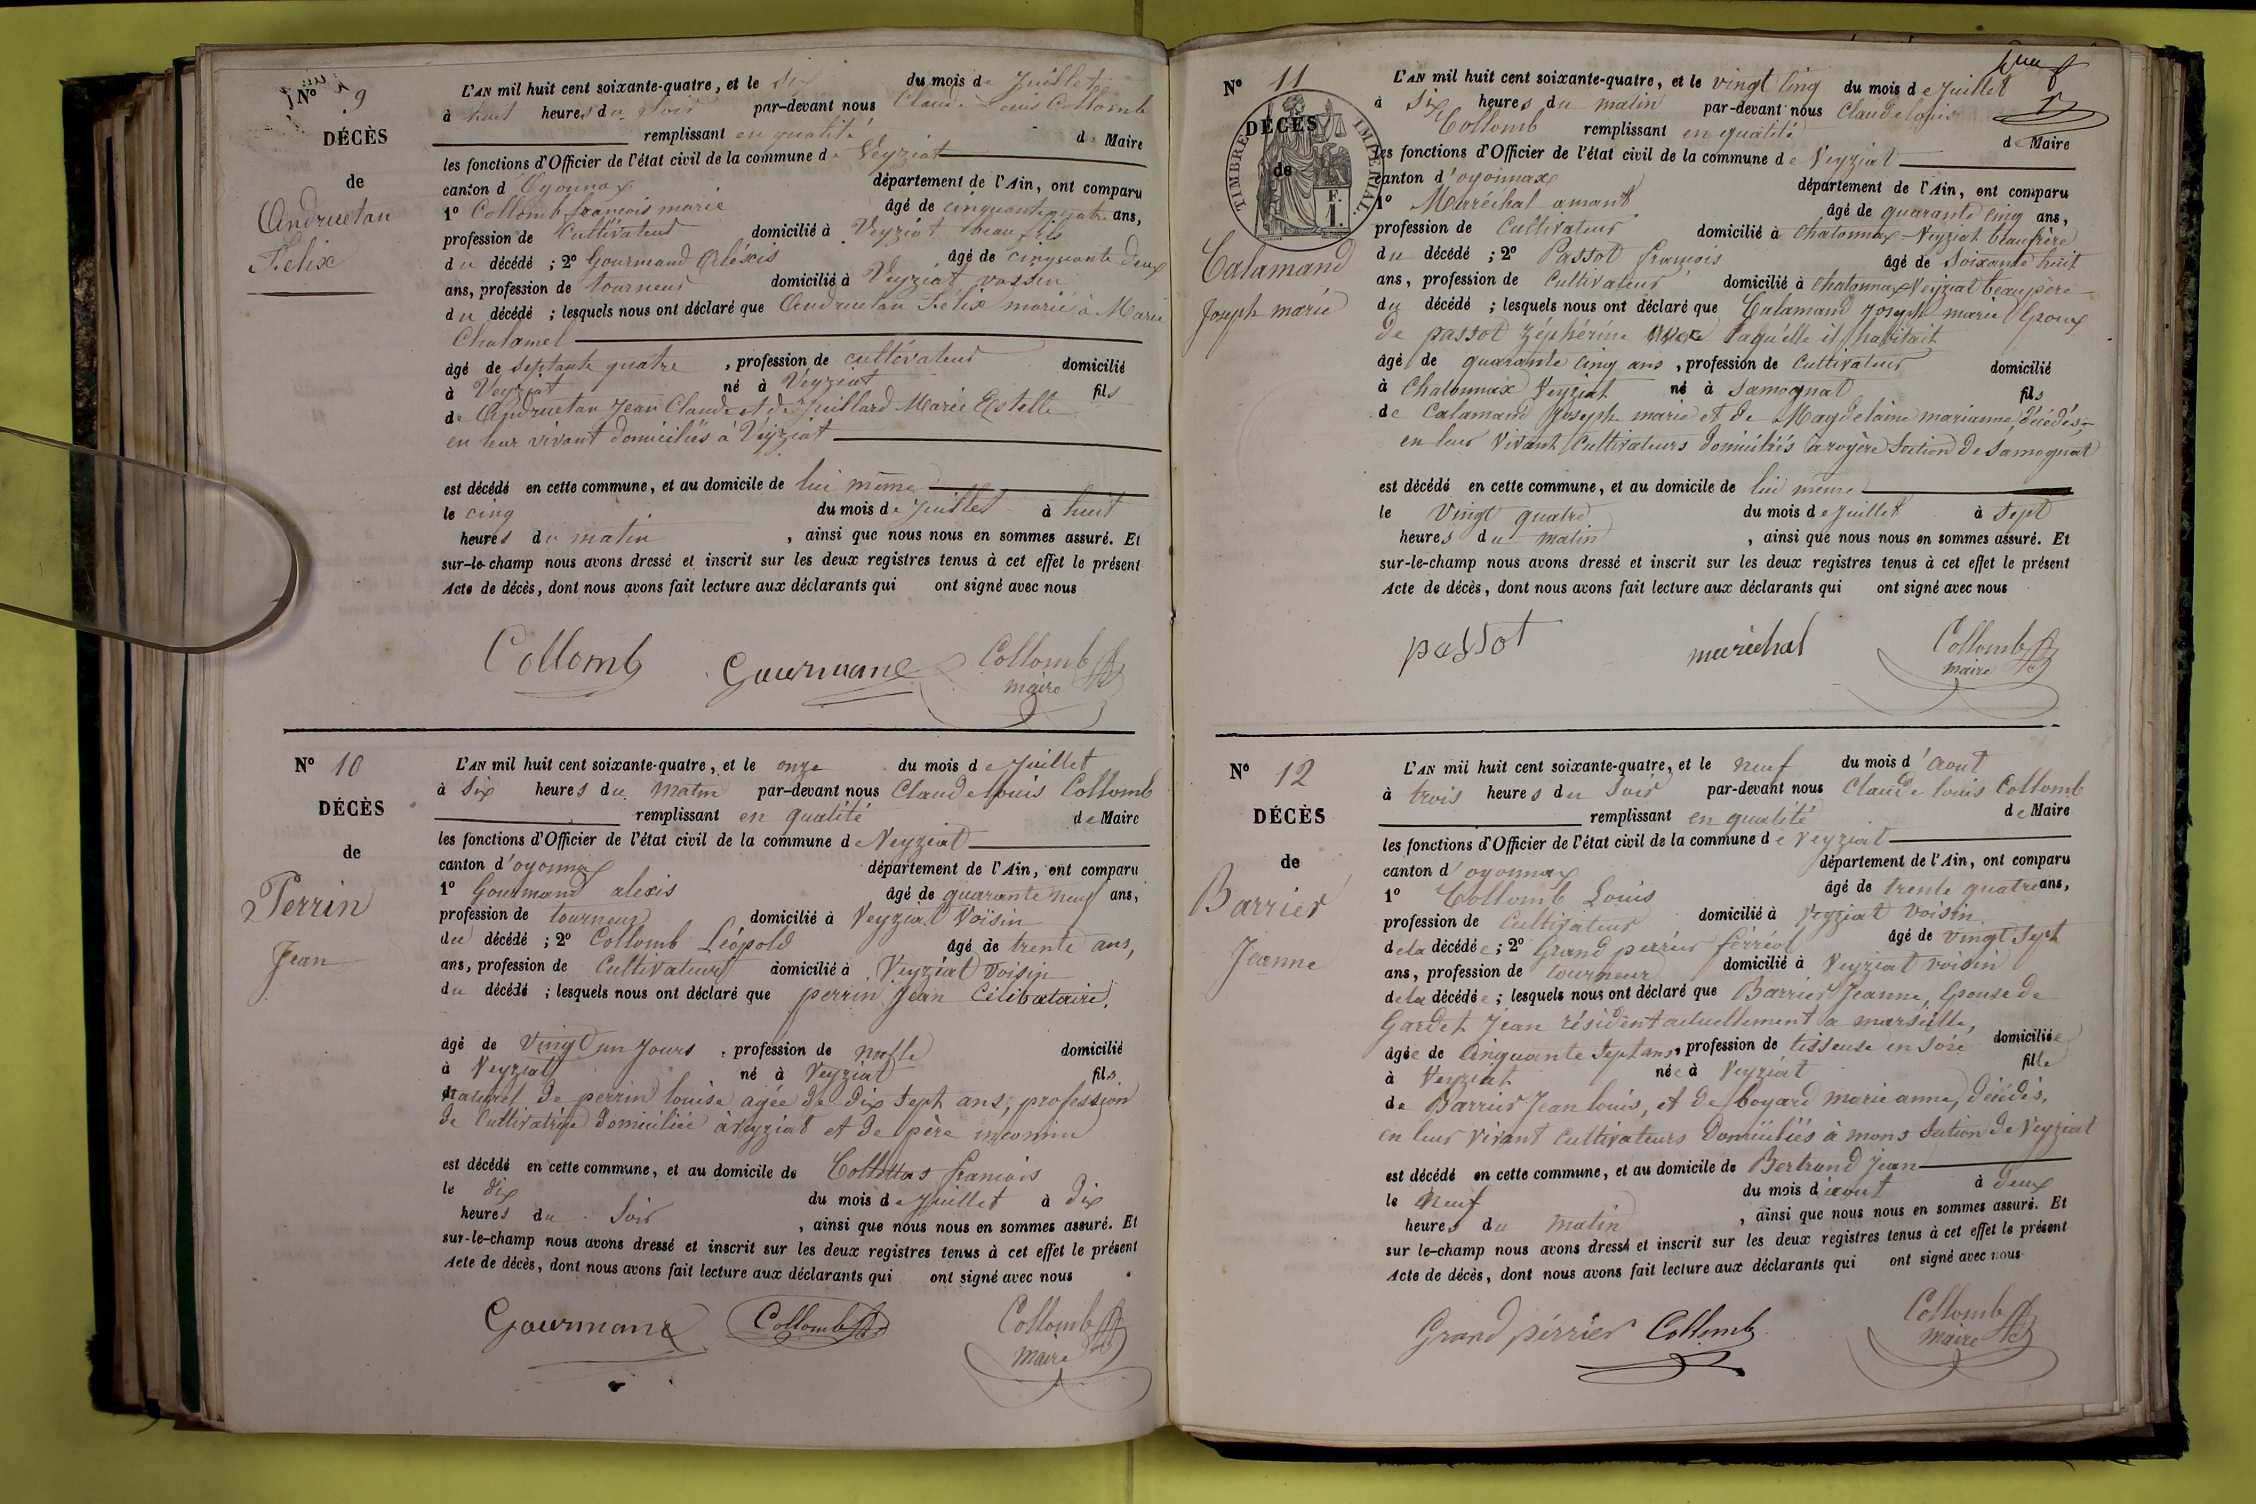 N° 9
DÉCÈS
de
Andruetan
Felix
L'AN mil huit cent soixante-quatre, et le six du mois de Juillet
à huit heures du soir par-devant nous Claude Louis Collomb
remplissant en qualité de Maire
les fonctions d'Officier de l'état civil de la commune de Veyziat
canton d'Oyonnax département de l'Ain, ont comparu
1° Collomb françois marie âgé de cinquante quatre ans,
profession de Cultivateur domicilié à Veyziat beau fils
du décédé ; 2° Gourmand Alexis âgé de cinquante deux
ans, profession de tourneur domicilié à Veyziat voisin
du décédé ; lesquels nous ont déclaré que Andruetan Felix marié à Marie
Chalamel
âgé de septante quatre , profession de cultivateur domicilié
à Veyziat né à Veyziat fils
de Andruetan Jean Claude et de Juillard Marie Estelle
en leur vivant domiciliés à Veyziat
est décédé en cette commune, et au domicile de lui même
le cinq du mois de Juillet à huit
heures du matin , ainsi que nous nous en sommes assuré. Et
sur-le-champ nous avons dressé et inscrit sur les deux registres tenus à cet effet le présent
Acte de décès, dont nous avons fait lecture aux déclarants qui ont signé avec nous
Collomb Gourmand Collomb
maire
N° 10
DÉCÈS
de
Perrin
Jean
L'AN mil huit cent soixante-quatre, et le onze du mois de Juillet
à six heures du matin par-devant nous Claude louis Collomb
remplissant en qualité de Maire
les fonctions d'Officier de l'état civil de la commune de Veyziat
canton d'oyonnax département de l'Ain, ont comparu
1° Gourmand alexis âgé de quarante neuf ans,
profession de tourneur domicilié à Veyziat Voisin
du décédé ; 2° Collomb Léopold âgé de trente ans,
ans, profession de Cultivateur domicilié à Veyziat Voisin
du décédé ; lesquels nous ont déclaré que perrin Jean Célibataire,
âgé de vingt un Jours , profession de domicilié
à Veyziat né à Veyziat fils
naturel de perrin louise agée de dix sept ans, profession
de Cultivatrice domiciliée à Veyziat et de père inconnu
est décédé en cette commune, et au domicile de françois
le dix du mois de Juillet à dix
heures du Soir , ainsi que nous nous en sommes assuré. Et
sur-le-champ nous avons dressé et inscrit sur les deux registres tenus à cet effet le présent
Acte de décès, dont nous avons fait lecture aux déclarants qui ont signé avec nous
Gourmand Collomb Collomb
Maire
N° 11
DÉCÈS
de
TIMBRE IMPÉRIAL
F.
1.
Calamand
Joseph marie
L'AN mil huit cent soixante-quatre, et le vingt cinq du mois de Juillet
à Six heures du matin par-devant nous Claude louis
Collomb remplissant en qualité de Maire
les fonctions d'Officier de l'état civil de la commune de Veyziat
canton d'oyonnax département de l'Ain, ont comparu
1° Maréchal amant âgé de quarante cinq ans,
profession de Cultivateur domicilié à chatonnax Veyziat beaufrère
du décédé ; 2° Passot françois âgé de Soixante huit
ans, profession de Cultivateur domicilié à chatonnax Veyziat beaupère
du décédé ; lesquels nous ont déclaré que Calamand Joseph marie Epoux
de passot Zéphérine avec laquelle il habitait
âgé de quarante cinq ans , profession de Cultivateur domicilié
à Chatonnax Veyziat né à Samognat fils
de Calamand Joseph marie et de Magdelaine marianne, décédés,
en leur vivant Cultivateurs domiciliés à royère Section de Samognat
est décédé en cette commune, et au domicile de lui même
le vingt quatre du mois de Juillet à Sept
heures du matin , ainsi que nous nous en sommes assuré. Et
sur-le-champ nous avons dressé et inscrit sur les deux registres tenus à cet effet le présent
Acte de décès, dont nous avons fait lecture aux déclarants qui ont signé avec nous
passot maréchal Collomb
maire
N° 12
DÉCÈS
de
Barrier
Jeanne
L'AN mil huit cent soixante-quatre, et le neuf du mois d'Aout
à trois heures du Soir par-devant nous Claude louis Collomb
remplissant en qualité de Maire
les fonctions d'Officier de l'état civil de la commune de Veyziat
canton d'oyonnax département de l'Ain, ont comparu
1° Collomb Louis âgé de trente quatre ans,
profession de Cultivateur domicilié à Veyziat Voisin
de la décédée ; 2° Grand perrier férréol âgé de vingt Sept
ans, profession de tourneur domicilié à Veyziat voisin
de la décédée ; lesquels nous ont déclaré que Barrier Jeanne, Epouse de
Gardet Jean résident actuellement a marseille,
âgée de Cinquante Sept ans, profession de tisseuse en Soie domiciliée
à Veyziat née à Veyziat fille
de Barrier Jean louis, et de boyard marie anne, décédés,
en leur vivant Cultivateurs Domiciliés à mons Section de Veyziat
est décédé en cette commune, et au domicile de Bertrand Jean
le Neuf du mois d'aout à deux
heures du matin , ainsi que nous nous en sommes assuré. Et
sur le-champ nous avons dressé et inscrit sur les deux registres tenus à cet effet le présent
Acte de décès, dont nous avons fait lecture aux déclarants qui ont signé avec nous
Grand pérrier Collomb Collomb
Maire